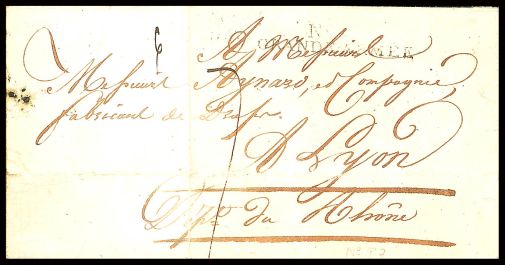 GRANDE ARMÉE
A Messieurs
Messieurs Aynard, et Compagnie
fabricant de Draps.
A Lyon
Dépt. du Rhône